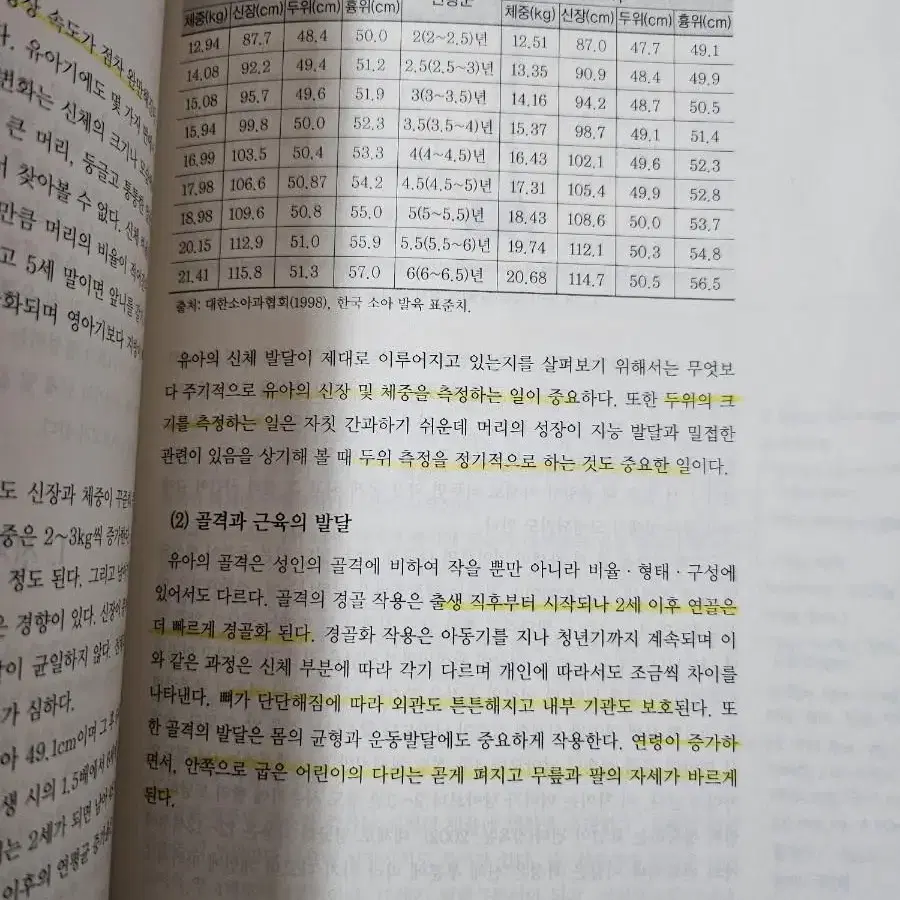 속도가 점차
유아기에도 몇 가지
변화는 신체의 크기나
큰 머리, 둥글고 통통한
찾아볼 수 없다. 신체
만큼 머리의 비율이
고 5세 말이면 앞니를
화되며 영아기보다
도 신장과 체중이
중은 2~3kg씩 증가한다
정도 된다. 그리고
은 경향이 있다. 신장이
이 균일하지 않다.
가 심하다.
아 49.1cm이며 그 후
생 시의 1.5배에서
는 2세가 되면
이후의 연평균
체중(kg) 신장(cm) 두위(cm) 흉위(cm) 체중(kg) 신장(cm) 두위(cm) 흉위(cm)
12.94 87.7 48.4 50.0 2(2~2.5)년 12.51 87.0 47.7 49.1
14.08 92.2 49.4 51.2 2.5(2.5~3)년 13.35 90.9 48.4 49.9
15.08 95.7 49.6 51.9 3(3~3.5)년 14.16 94.2 48.7 50.5
15.94 99.8 50.0 52.3 3.5(3.5~4)년 15.37 98.7 49.1 51.4
16.99 103.5 50.4 53.3 4(4~4.5)년 16.43 102.1 49.6 52.3
17.98 106.6 50.87 54.2 4.5(4.5~5)년 17.31 105.4 49.9 52.8
18.98 109.6 50.8 55.0 5(5~5.5)년 18.43 108.6 50.0 53.7
20.15 112.9 51.0 55.9 5.5(5.5~6)년 19.74 112.1 50.3 54.8
21.41 115.8 51.3 57.0 6(6~6.5)년 20.68 114.7 50.5 56.5
출처: 대한소아과협회(1998), 한국 소아 발육 표준치.
유아의 신체 발달이 제대로 이루어지고 있는지를 살펴보기 위해서는 무엇보
다 주기적으로 유아의 신장 및 체중을 측정하는 일이 중요하다. 또한 두위의 크
기를 측정하는 일은 자칫 간과하기 쉬운데 머리의 성장이 지능 발달과 밀접한
관련이 있음을 상기해 볼 때 두위 측정을 정기적으로 하는 것도 중요한 일이다.
(2) 골격과 근육의 발달
유아의 골격은 성인의 골격에 비하여 작을 뿐만 아니라 비율·형태·구성에
있어서도 다르다. 골격의 경골 작용은 출생 직후부터 시작되나 2세 이후 연골은
더 빠르게 경골화 된다. 경골화 작용은 아동기를 지나 청년기까지 계속되며 이
와 같은 과정은 신체 부분에 따라 각기 다르며 개인에 따라서도 조금씩 차이를
나타낸다. 뼈가 단단해짐에 따라 외관도 튼튼해지고 내부 기관도 보호된다. 또
한 골격의 발달은 몸의 균형과 운동발달에도 중요하게 작용한다. 연령이 증가하
면서, 안쪽으로 굽은 어린이의 다리는 곧게 펴지고 무릎과 팔의 자세가 바르게
된다.